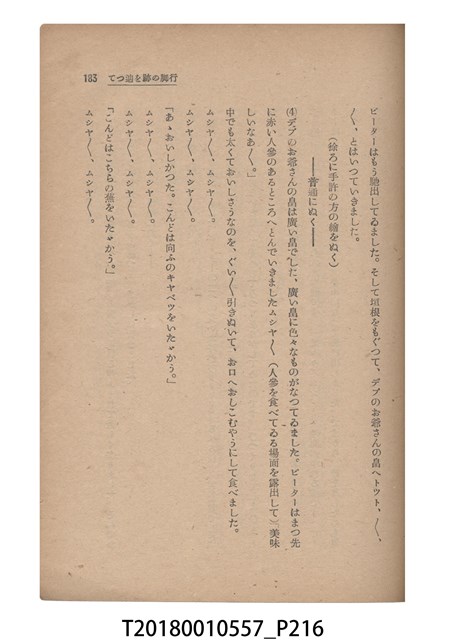 183　てつ追を跡の脚行
ピーターはもう馳出してゐました。そして垣根をもぐつて、デブのお爺さんの畠へトツト、〱、
〱、とはいつていきました。
（徐ろに手許の方の繪をぬく）
――普通にぬく――
(4) デブのお爺さんの畠は廣い畠でした、廣い畠に色々なものがなつてゐました。ピーターはまつ先
に赤い人參のあるところへとんでいきましたムシヤ〱（人參を食べてゐる場面を露出して）美味
しいなあ〱。」
中でも太くておいしさうなのを、ぐい〱引きぬいて、お口へおしこむやうにして食べました。
ムシヤ〱、ムシヤ〱。
ムシヤ〱、ムシヤ〱。
『あゝおいしかつた。こんどは向ふのキャベツをいたゞかう。」
ムシヤ〱、ムシヤ〱。
『こんどはこちらの蕪をいたゞかう。」
ムシヤ〱、ムシヤ〱。
T20180010557_P216